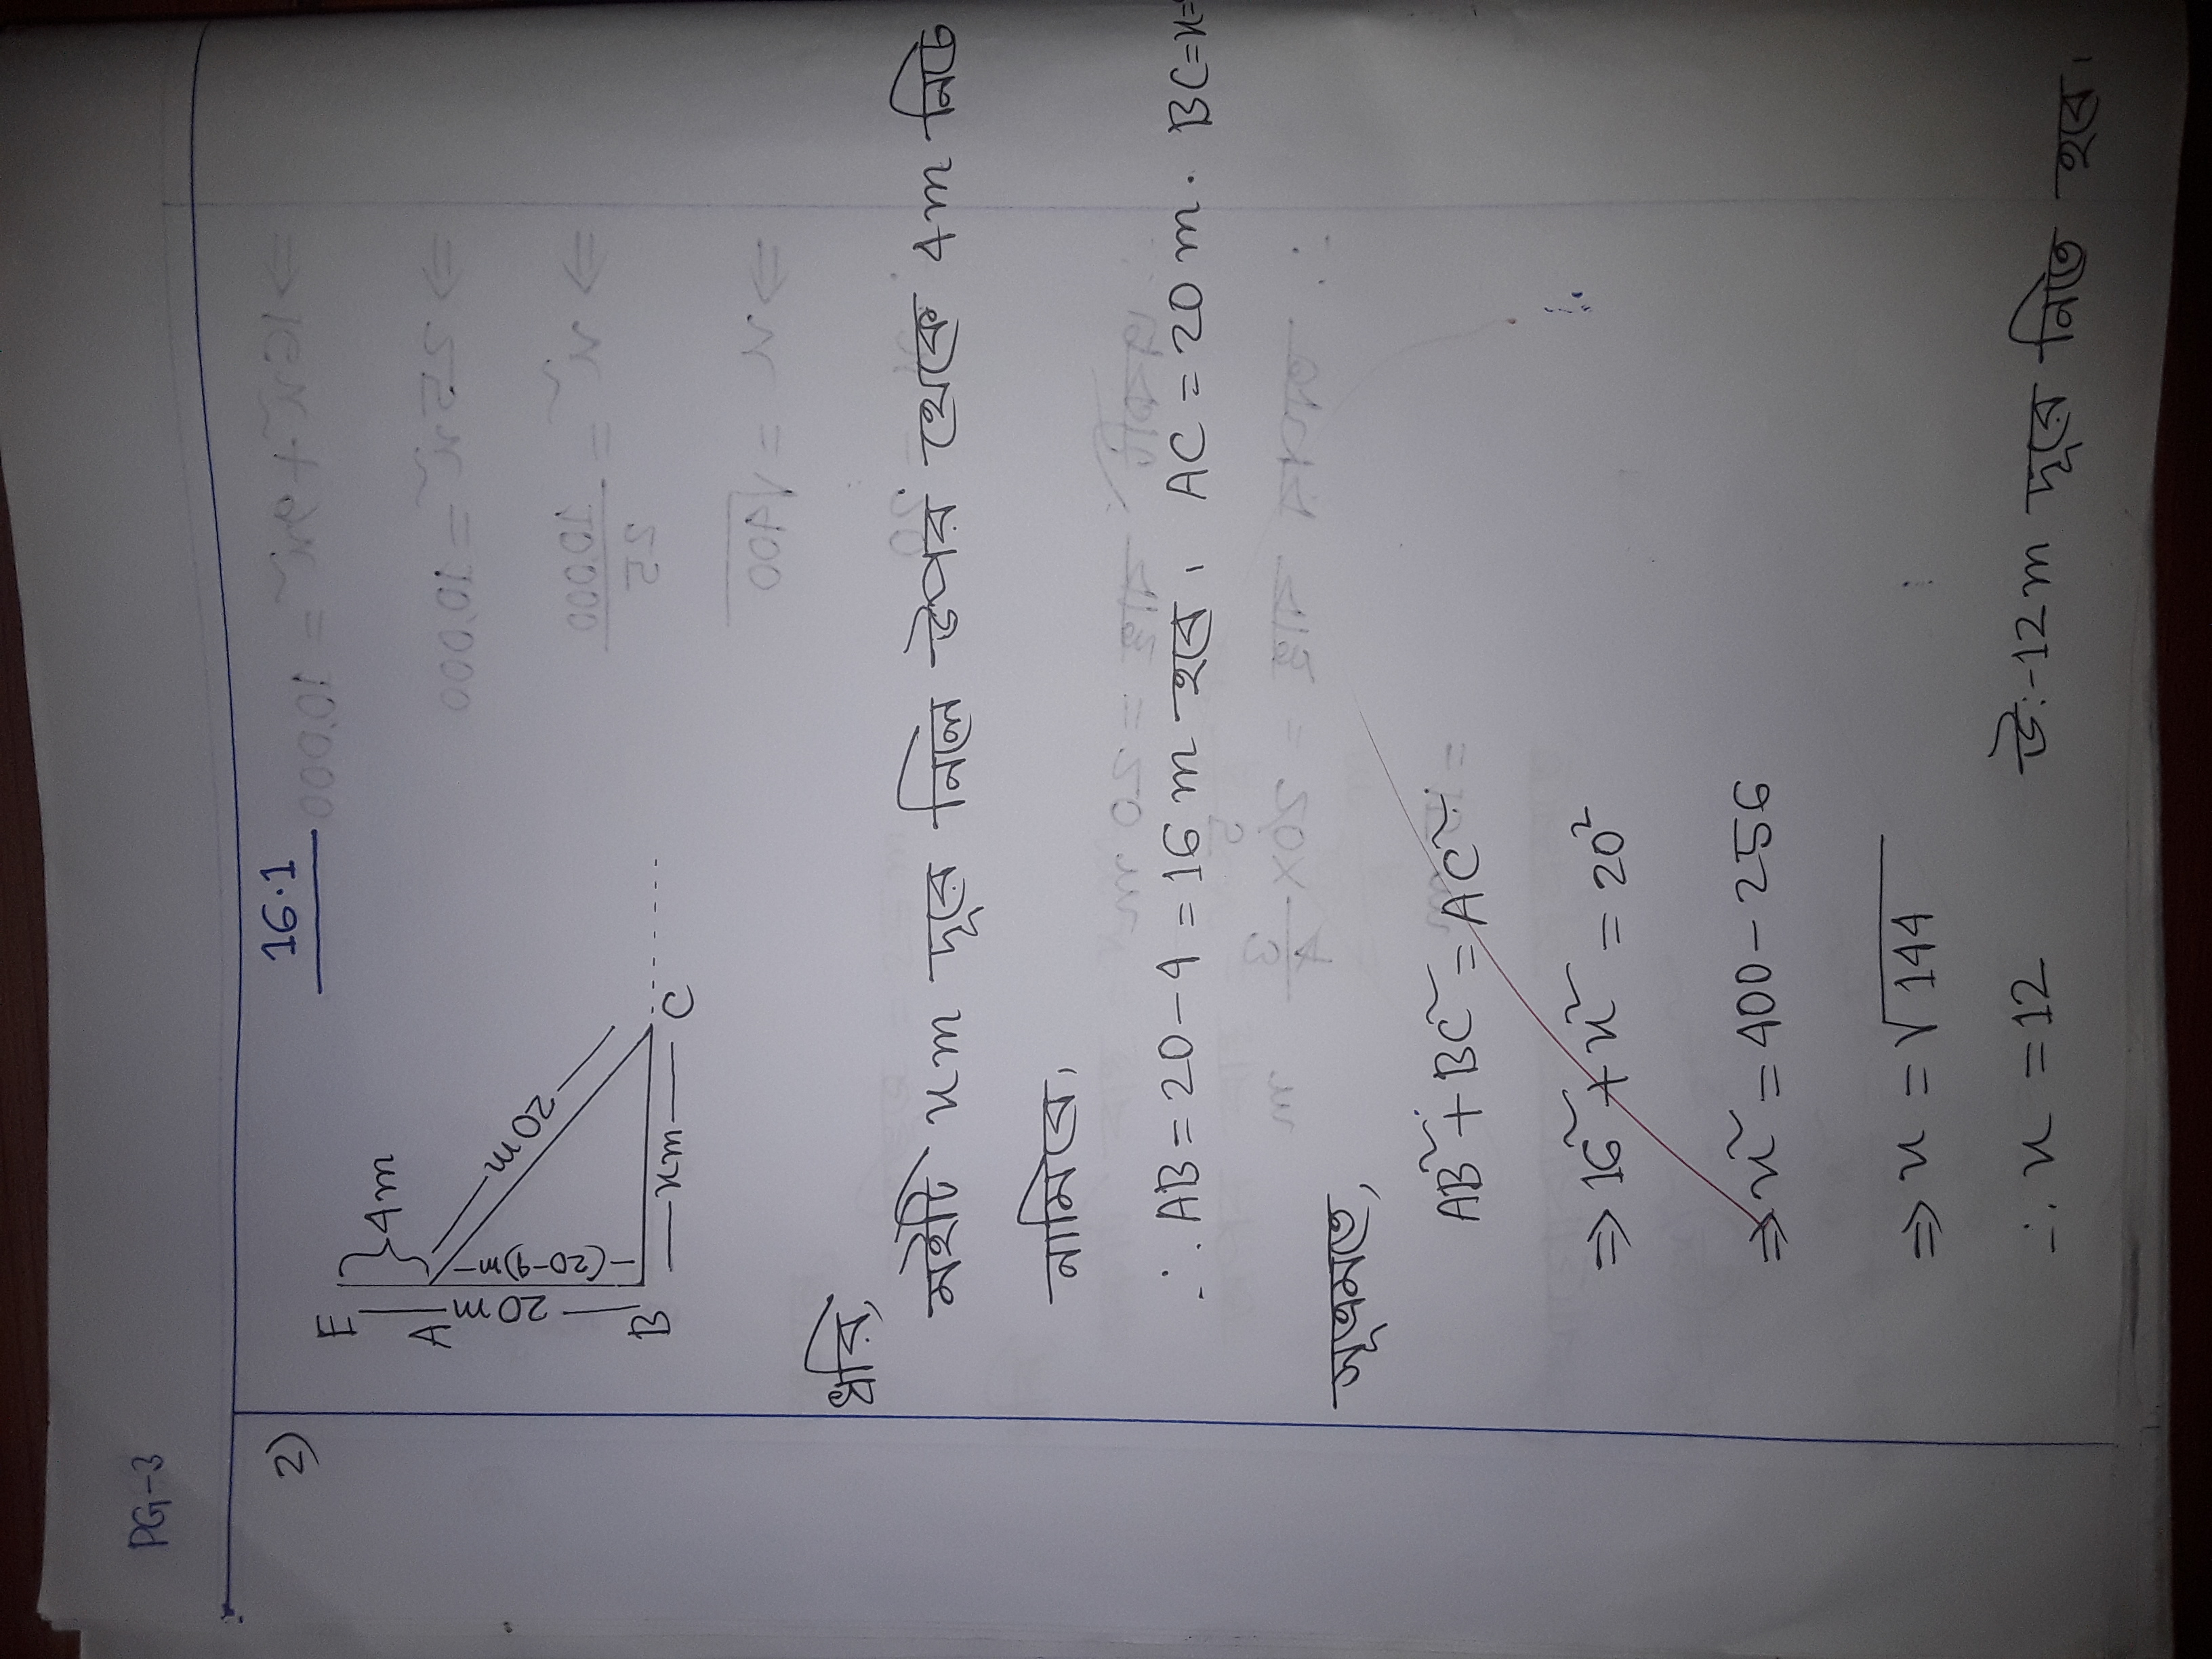 PG-3
2)
16.1
E
4m
A
20m
(20-4)m
20m
B
xm
C
ধরি,
মইটি xm দূরে নিলে উপর থেকে 4m নিচে
নামিবে।
∴ AB = 20 - 4 = 16 m হবে। AC = 20 m. BC=x=
সূত্রমতে,
AB² + BC² = AC²
⇒ 16² + x² = 20²
⇒ x² = 400 - 256
⇒ x = √144
∴ x = 12 উ:-12m দূরে নিতে হবে।